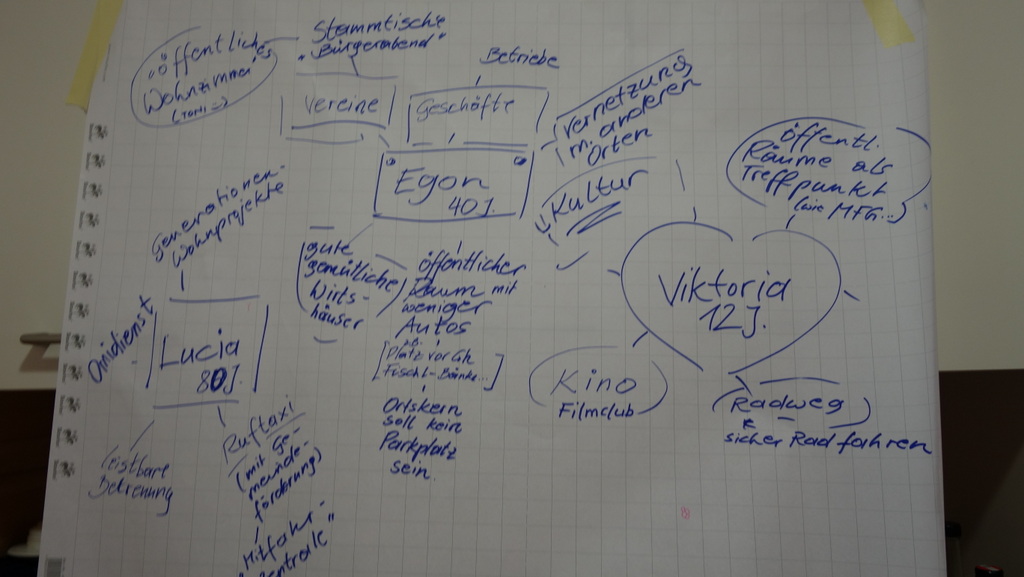 "öffentliches
Wohnzimmer"
Stammtische
"Bürgerabend"
Vereine
Betriebe
Geschäfte
Vernetzung
m. anderen
Orten
Kultur
Egon
40 J.
gute
gemütliche
Wirts-
häuser
öffentlicher
Raum mit
weniger
Autos
z.B.
Ortskern
soll kein
Parkplatz
sein.
Generationen-
Wohnprojekte
Omidienst
Lucia
80 J.
leistbare
Betreuung
Ruftaxi
(mit Ge-
meinde-
förderung)
"Mitfahr-
zentrale"
öffentl.
Räume als
Treffpunkt
Viktoria
12 J.
Kino
Filmclub
Radweg
sicher Rad fahren